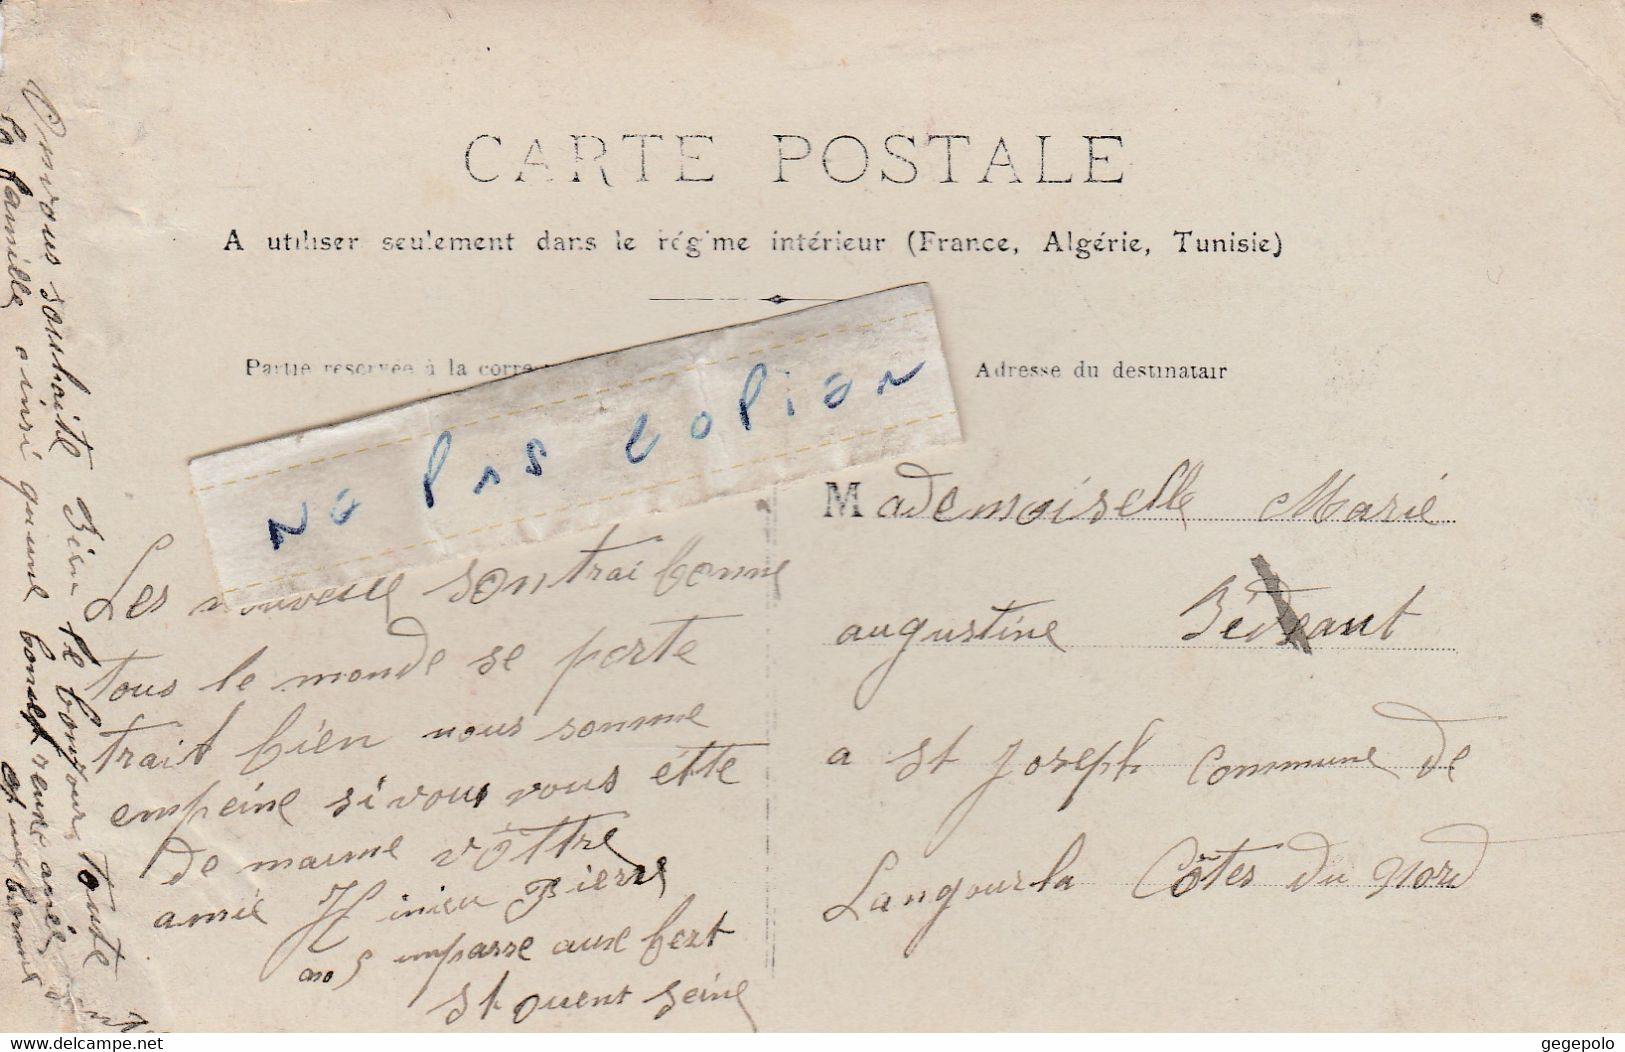 CARTE POSTALE
A utiliser seulement dans le régime intérieur (France, Algérie, Tunisie)
Partie réservée à la corre
Adresse du destinatair
Ne pas copier
Mademoiselle Marie
augustine Bédeaut
a st Joseph commune de
Langourla Côtes du Nord
Les nouvelle sontrai bonne
tous le monde se porte
trait bien nous somme
empeine si vous vous ette
de maime vôttre
amie Hinieu Pierre
no 5 impasse aube bert
st ouent seine
Onvous souhaite Bien le bonjour, toute
la famille einsi quune bonne
Delcampe.com
gegepolo